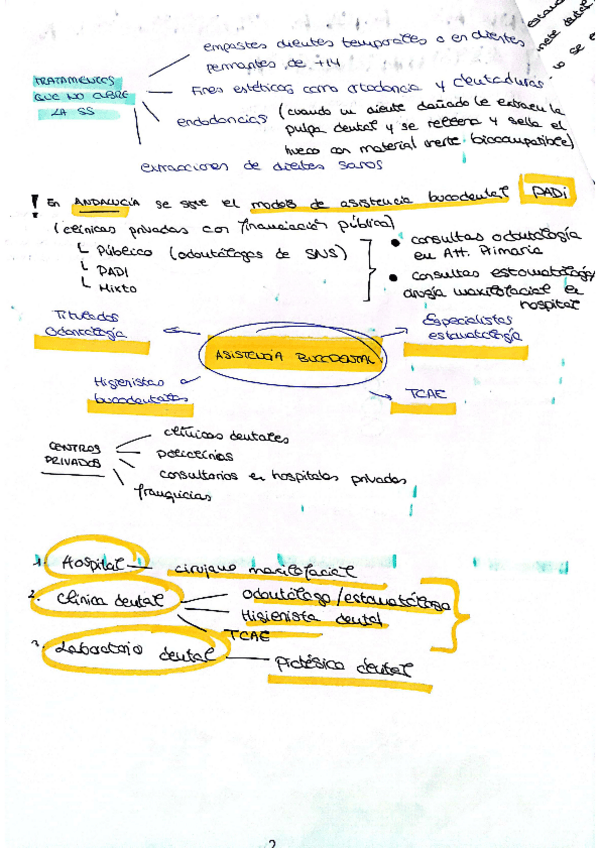 empastes dientes temporales o en dientes
permantes de +14
TRATAMIENTOS
QUE NO CUBRE
LA SS
Fines estéticos como ortodoncia y dentaduras
endodoncias (cuando un diente dañado le extraen la
pulpa dental y se rellena y sella el
hueco con material inerte biocompatible)
extracciones de dientes sanos
! En ANDALUCÍA se sigue el modelo de asistencia bucodental PADI
(clínicas privadas con financiación pública)
Público (odontólogos de SNS)
PADI
Mixto
• consultas odontología
en Att. Primaria
• consultas estomatología/
cirugía maxilofacial en
hospital
Titulados
Odontología
Especialistas
estomatología
ASISTENCIA BUCODENTAL
Higienistas
bucodentales
TCAE
CENTROS
PRIVADOS
clínicas dentales
policlínicos
consultorios en hospitales privados
franquicias
1. Hospital — cirujano maxilofacial
2. Clínica dental
odontólogo/estomatólogo
Higienista dental
TCAE
3. Laboratorio dental — Protésico dental
2